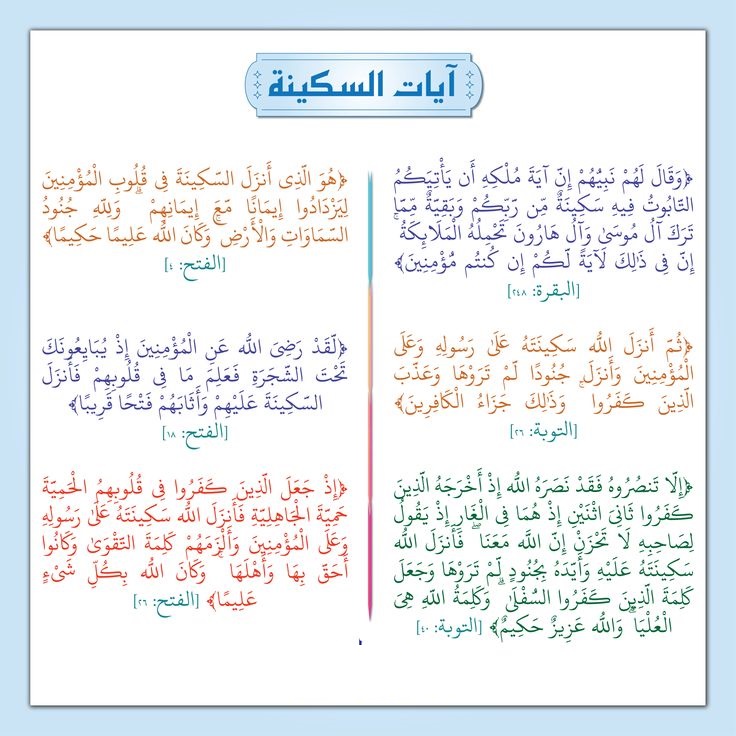 آيات السكينة
﴿وَقَالَ لَهُمْ نَبِيُّهُمْ إِنَّ آيَةَ مُلْكِهِ أَن يَأْتِيَكُمُ
التَّابُوتُ فِيهِ سَكِينَةٌ مِّن رَّبِّكُمْ وَبَقِيَّةٌ مِّمَّا
تَرَكَ آلُ مُوسَىٰ وَآلُ هَارُونَ تَحْمِلُهُ الْمَلَائِكَةُ ۚ
إِنَّ فِي ذَٰلِكَ لَآيَةً لَّكُمْ إِن كُنتُم مُّؤْمِنِينَ﴾
[البقرة: ٢٤٨]
﴿ثُمَّ أَنزَلَ اللَّهُ سَكِينَتَهُ عَلَىٰ رَسُولِهِ وَعَلَى
الْمُؤْمِنِينَ وَأَنزَلَ جُنُودًا لَّمْ تَرَوْهَا وَعَذَّبَ
الَّذِينَ كَفَرُوا ۚ وَذَٰلِكَ جَزَاءُ الْكَافِرِينَ﴾
[التوبة: ٢٦]
﴿إِلَّا تَنصُرُوهُ فَقَدْ نَصَرَهُ اللَّهُ إِذْ أَخْرَجَهُ الَّذِينَ
كَفَرُوا ثَانِيَ اثْنَيْنِ إِذْ هُمَا فِي الْغَارِ إِذْ يَقُولُ
لِصَاحِبِهِ لَا تَحْزَنْ إِنَّ اللَّهَ مَعَنَا ۖ فَأَنزَلَ اللَّهُ
سَكِينَتَهُ عَلَيْهِ وَأَيَّدَهُ بِجُنُودٍ لَّمْ تَرَوْهَا وَجَعَلَ
كَلِمَةَ الَّذِينَ كَفَرُوا السُّفْلَىٰ ۗ وَكَلِمَةُ اللَّهِ هِيَ
الْعُلْيَا ۗ وَاللَّهُ عَزِيزٌ حَكِيمٌ﴾ [التوبة: ٤٠]
﴿هُوَ الَّذِي أَنزَلَ السَّكِينَةَ فِي قُلُوبِ الْمُؤْمِنِينَ
لِيَزْدَادُوا إِيمَانًا مَّعَ إِيمَانِهِمْ ۗ وَلِلَّهِ جُنُودُ
السَّمَاوَاتِ وَالْأَرْضِ ۚ وَكَانَ اللَّهُ عَلِيمًا حَكِيمًا﴾
[الفتح: ٤]
﴿لَّقَدْ رَضِيَ اللَّهُ عَنِ الْمُؤْمِنِينَ إِذْ يُبَايِعُونَكَ
تَحْتَ الشَّجَرَةِ فَعَلِمَ مَا فِي قُلُوبِهِمْ فَأَنزَلَ
السَّكِينَةَ عَلَيْهِمْ وَأَثَابَهُمْ فَتْحًا قَرِيبًا﴾
[الفتح: ١٨]
﴿إِذْ جَعَلَ الَّذِينَ كَفَرُوا فِي قُلُوبِهِمُ الْحَمِيَّةَ
حَمِيَّةَ الْجَاهِلِيَّةِ فَأَنزَلَ اللَّهُ سَكِينَتَهُ عَلَىٰ رَسُولِهِ
وَعَلَى الْمُؤْمِنِينَ وَأَلْزَمَهُمْ كَلِمَةَ التَّقْوَىٰ وَكَانُوا
أَحَقَّ بِهَا وَأَهْلَهَا ۚ وَكَانَ اللَّهُ بِكُلِّ شَيْءٍ
عَلِيمًا﴾ [الفتح: ٢٦]